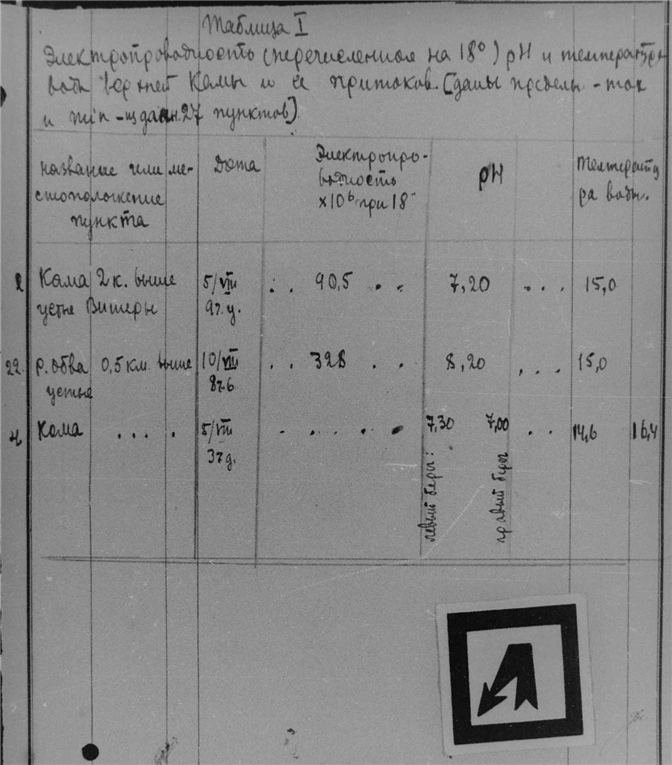 Таблица I
Электропроводность (перечисленная на 18°) pH и температура
воды верхней Камы и её притоков. (даны пределы - max
и min - из данн. 27 пунктов).
название или ме- Дата Электропро- pH Температу
стоположение водность ра воды.
пункта ×10⁶ при 18
2 Кама 2 к. выше 5/VIII . . 90,5 . . 7,20 . . . 15,0
устья Вишеры 9 ч. у.
22. р. Обва 0,5 км. выше 10/VIII . . 328 . . 8,20 . . . 15,0
устья 8 ч. в
4 Кама . . . . 5/VIII . . . . . 7,30 7,00 . . 14,6 16,4
3 ч д.
левый берег:
правый берег